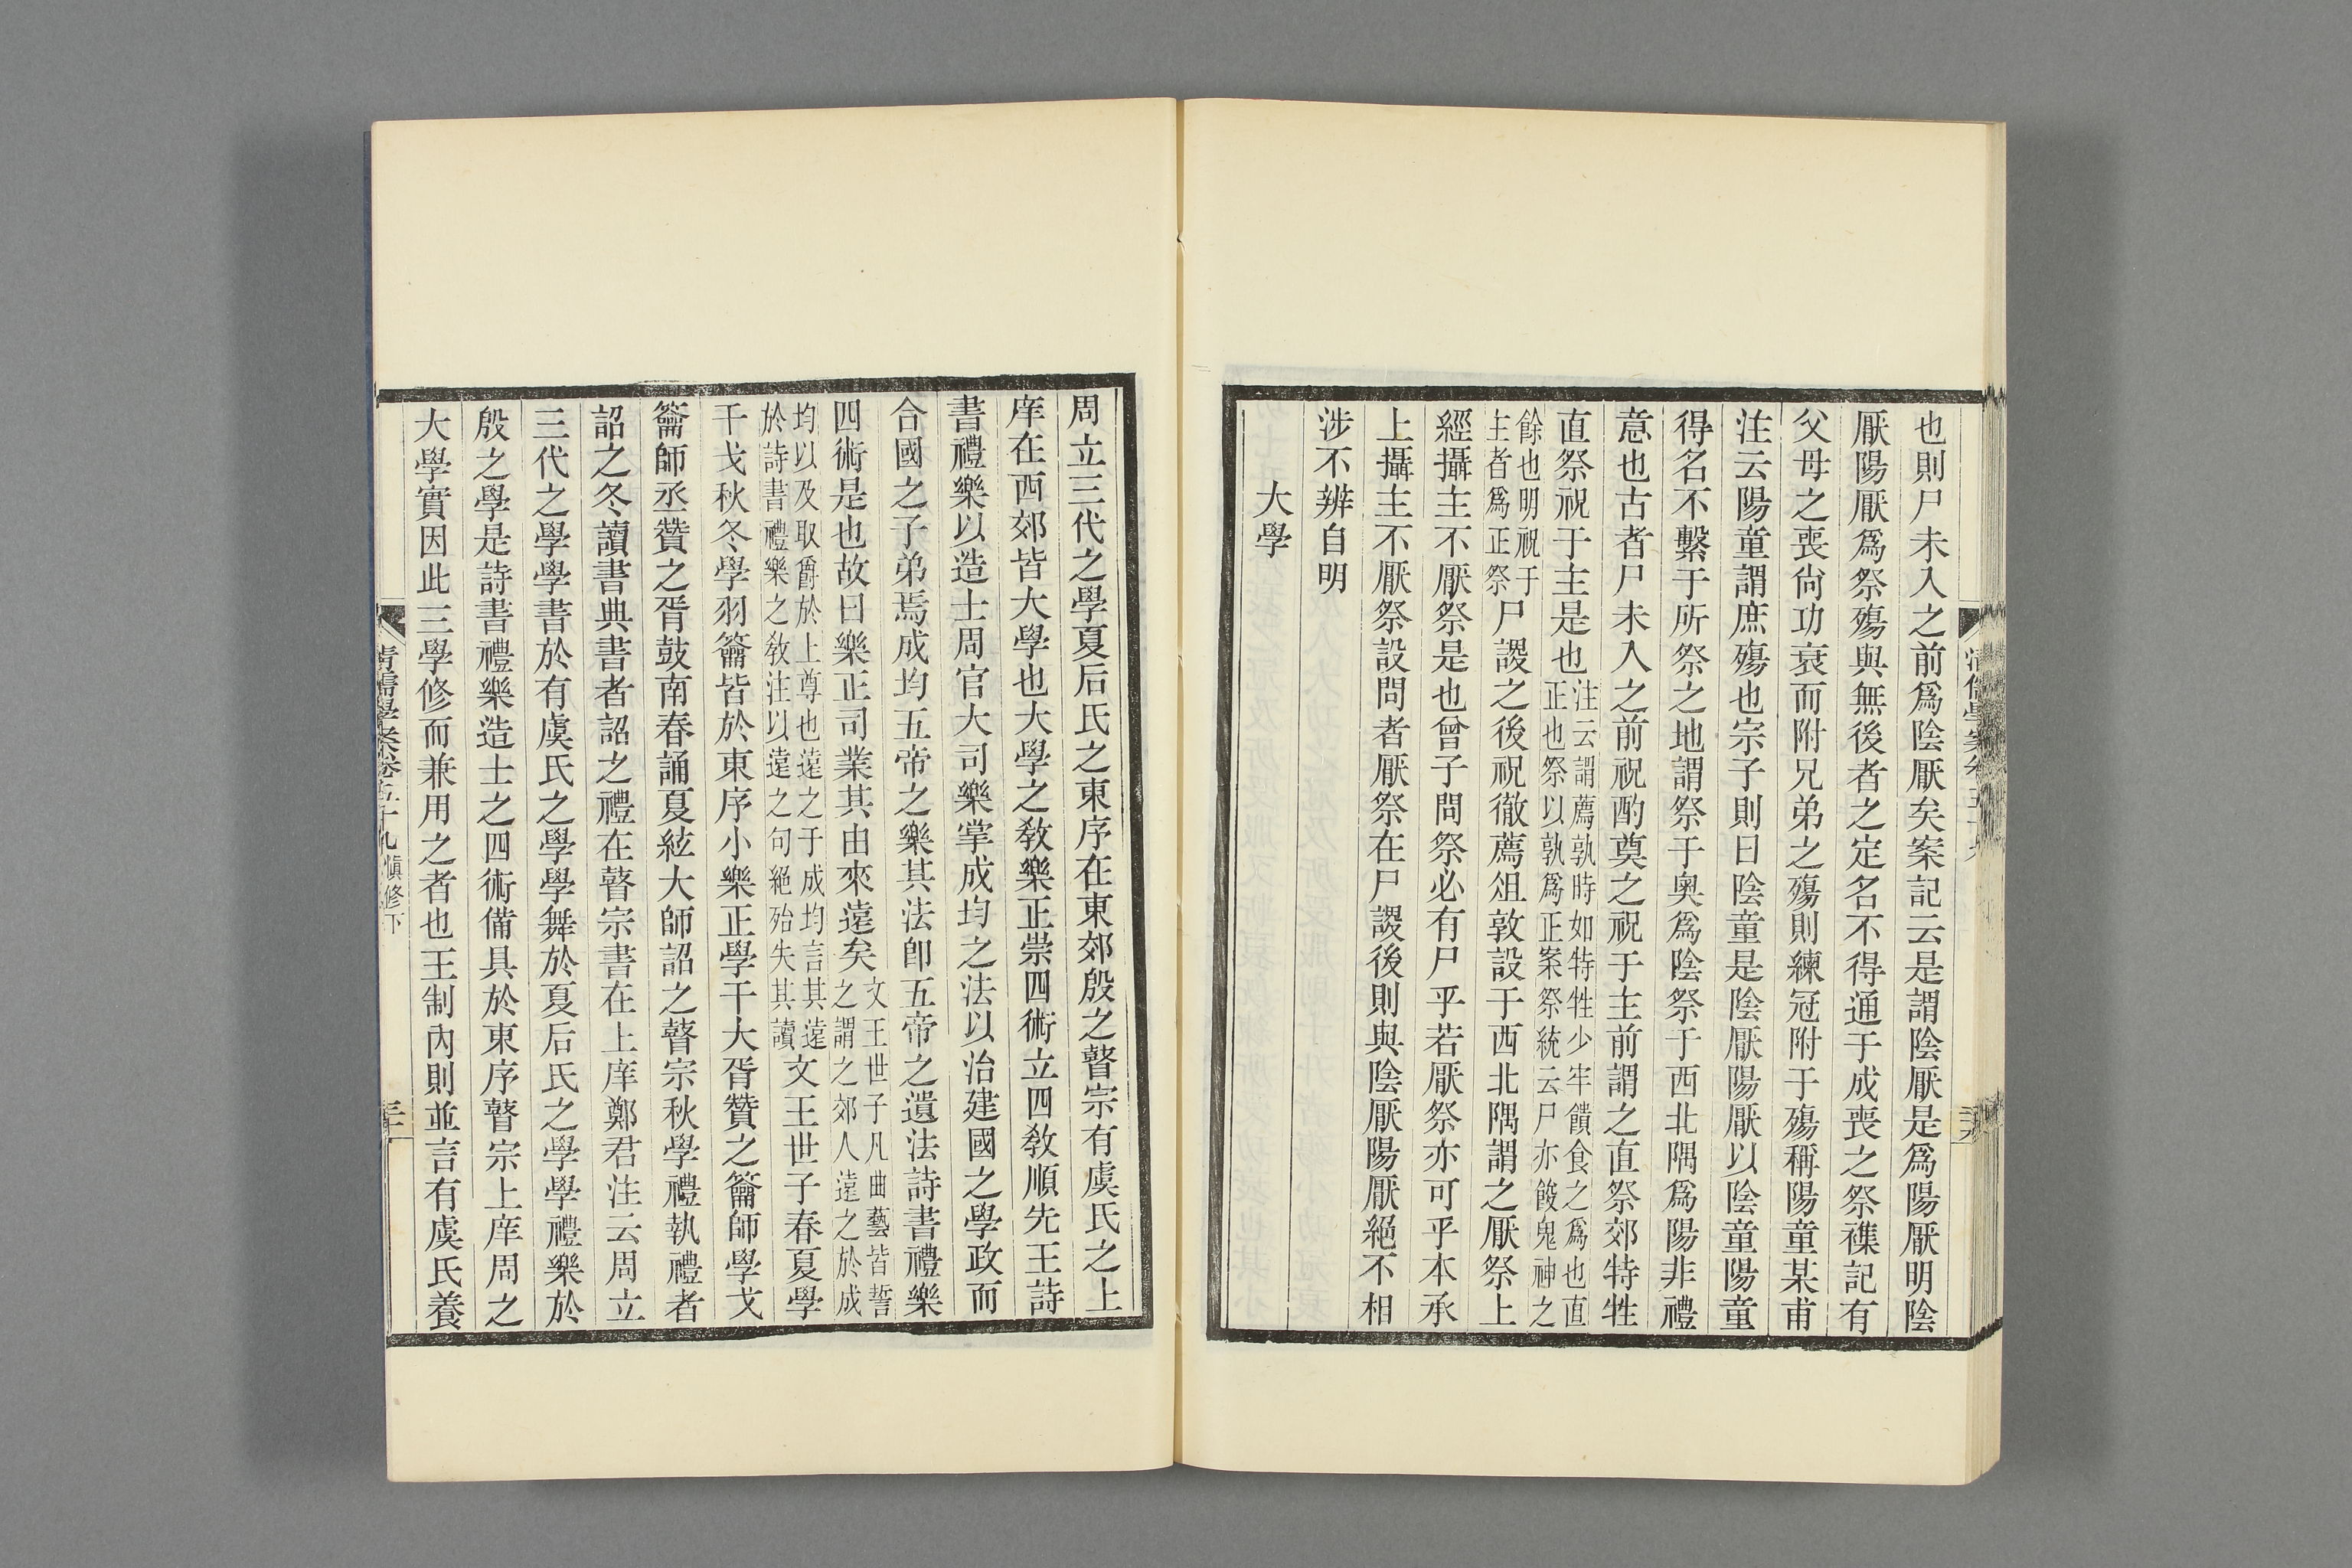 也則尸未入之前爲陰厭矣案記云是謂陰厭是爲陽厭明陰
厭陽厭爲祭殤與無後者之定名不得通于成喪之祭襍記有
父母之喪尙功衰而附兄弟之殤則練冠附于殤稱陽童某甫
注云陽童謂庶殤也宗子則曰陰童是陰厭陽厭以陰童陽童
得名不繫于所祭之地謂祭于奧爲陰祭于西北隅爲陽非禮
意也古者尸未入之前祝酌奠之祝于主前謂之直祭郊特牲
直祭祝于主是也注云謂薦孰時如特牲少牢饋食之爲也直
正也祭以孰爲正案祭統云尸亦餕鬼神之
餘也明祝于
主者爲正祭尸謖之後祝徹薦俎敦設于西北隅謂之厭祭上
經攝主不厭祭是也曾子問祭必有尸乎若厭祭亦可乎本承
上攝主不厭祭設問者厭祭在尸謖後則與陰厭陽厭絕不相
涉不辨自明
大學
周立三代之學夏后氏之東序在東郊殷之瞽宗有虞氏之上
庠在西郊皆大學也大學之敎樂正崇四術立四敎順先王詩
書禮樂以造士周官大司樂掌成均之法以治建國之學政而
合國之子弟焉成均五帝之樂其法卽五帝之遺法詩書禮樂
四術是也故曰樂正司業其由來遠矣文王世子凡曲藝皆誓
之謂之郊人遠之於成
均以及取爵於上尊也遠之于成均言其遠
於詩書禮樂之敎注以遠之句絕殆失其讀文王世子春夏學
干戈秋冬學羽籥皆於東序小樂正學干大胥贊之籥師學戈
籥師丞贊之胥鼓南春誦夏絃大師詔之瞽宗秋學禮執禮者
詔之冬讀書典書者詔之禮在瞽宗書在上庠鄭君注云周立
三代之學學書於有虞氏之學學舞於夏后氏之學學禮樂於
殷之學是詩書禮樂造士之四術備具於東序瞽宗上庠周之
大學實因此三學修而兼用之者也王制內則並言有虞氏養
清儒學案卷五十九 愼修下 三十